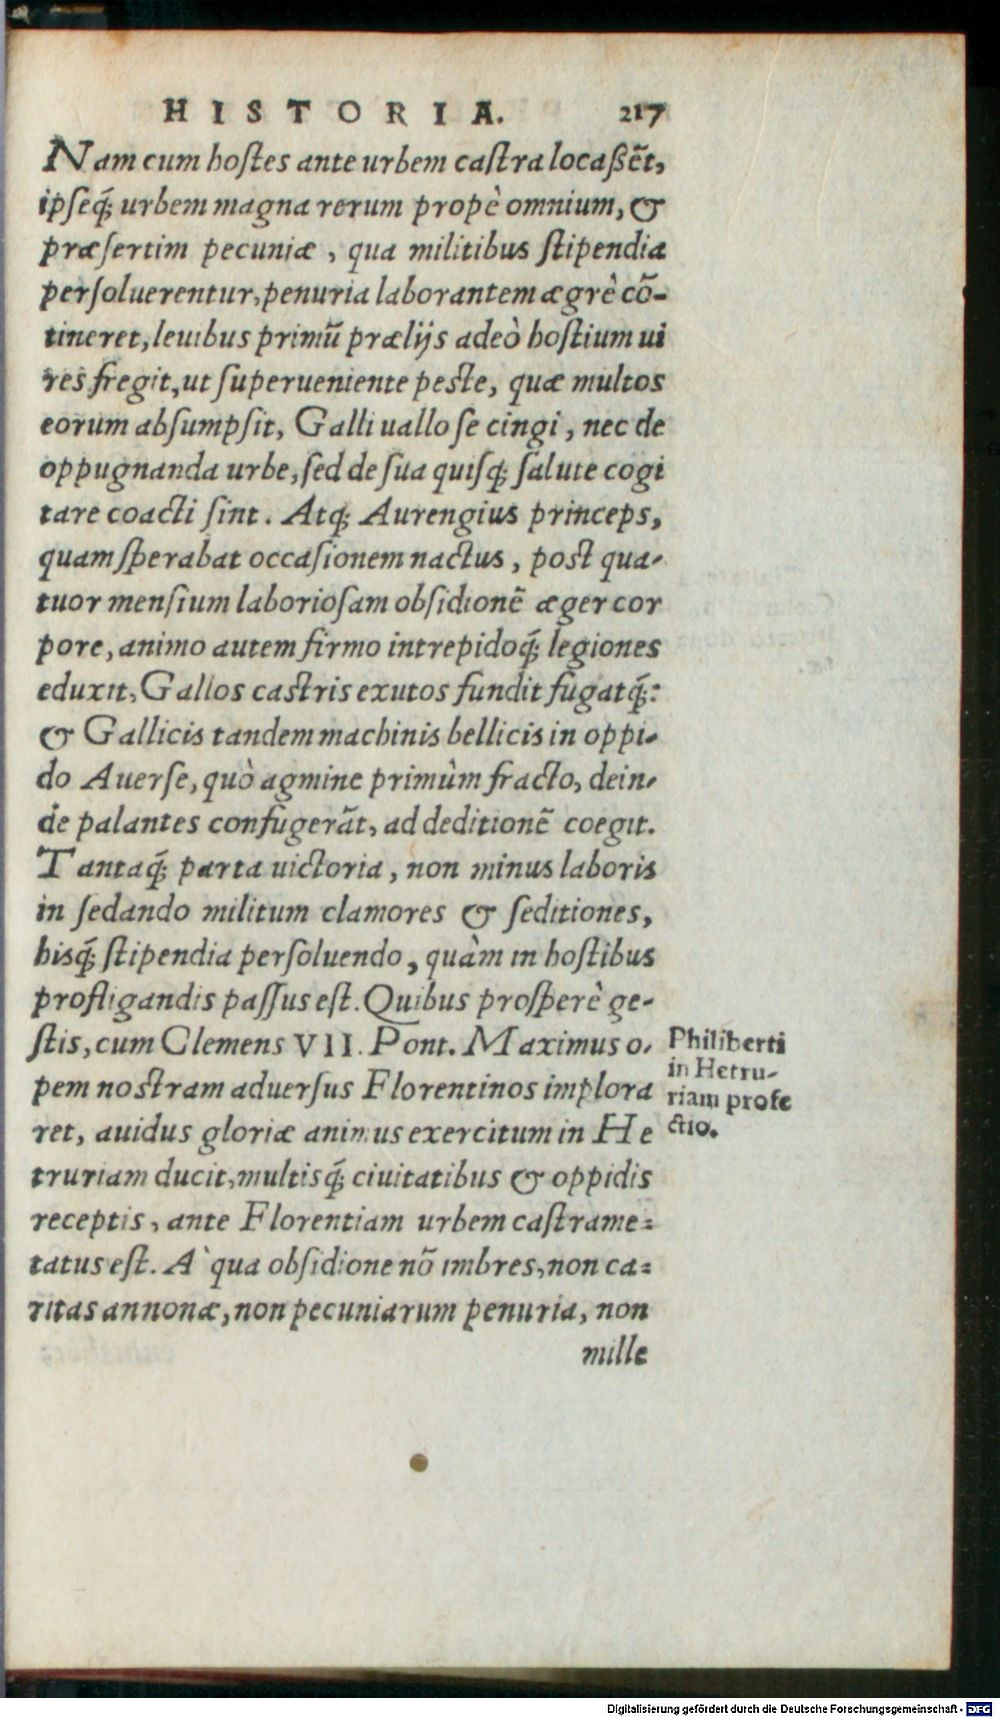 HISTORIA. 217
Nam cum hostes ante urbem castra locaßēt,
ipseq́; urbem magna rerum propè omnium, &
præsertim pecuniæ, qua militibus stipendia
persoluerentur, penuria laborantem ægrè cō-
tineret, leuibus primū prælijs adeò hostium ui
res fregit, ut superueniente peste, quæ multos
eorum absumpsit, Galli uallo se cingi, nec de
oppugnanda urbe, sed de sua quisq; salute cogi
tare coacti sint. Atq; Aurengius princeps,
quam sperabat occasionem nactus, post qua-
tuor mensium laboriosam obsidionē æger cor
pore, animo autem firmo intrepidoq́; legiones
eduxit, Gallos castris exutos fundit fugatq́;:
& Gallicis tandem machinis bellicis in oppi-
do Auerse, quò agmine primùm fracto, dein-
de palantes confugerāt, ad deditionē coegit.
Tantaq́; parta uictoria, non minus laboris
in sedando militum clamores & seditiones,
hisq́; stipendia persoluendo, quàm in hostibus
profligandis passus est. Quibus prosperè ge-
stis, cum Clemens VII. Pont. Maximus o-
pem nostram aduersus Florentinos implora
ret, auidus gloriæ animus exercitum in He
truriam ducit, multisq́; ciuitatibus & oppidis
receptis, ante Florentiam urbem castrame-
tatus est. A` qua obsidione nō imbres, non ca-
ritas annonæ, non pecuniarum penuria, non
mille
Philiberti
in Hetru-
riam profe
ctio.
Digitalisierung gefördert durch die Deutsche Forschungsgemeinschaft - DFG